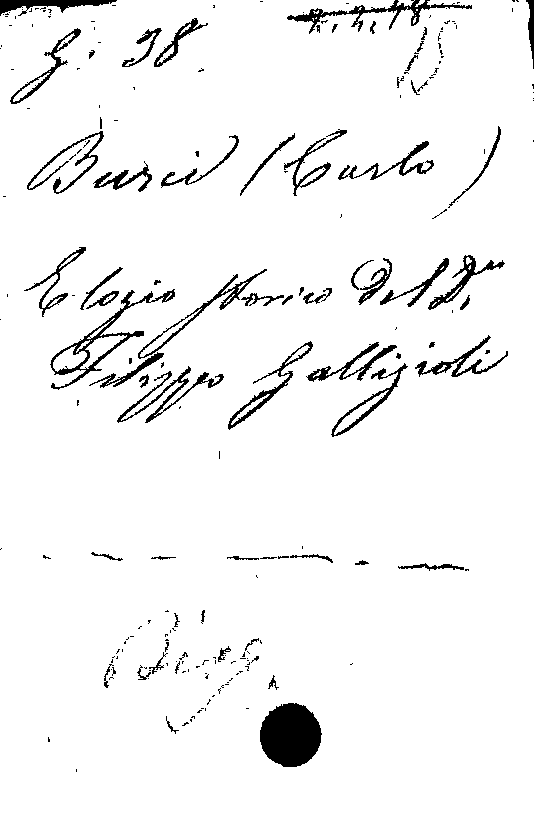 G. 38
15
Burci (Carlo)
Elogio storico del D.re
Filippo Gallizioli
Biog.